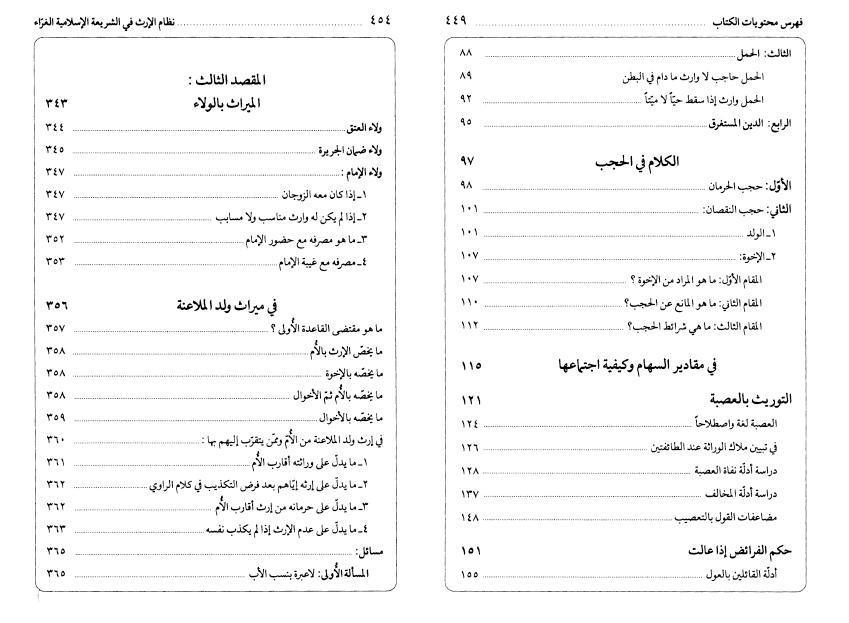 فهرس محتويات الكتاب ........ ٤٤٩
الثالث: الحمل ........ ٨٨
الحمل حاجب لا وارث ما دام في البطن ٨٩
الحمل وارث إذا سقط حيّاً لا ميّتاً ........ ٩٢
الرابع: الدين المستغرق ........ ٩٥
الكلام في الحجب ٩٧
الأوّل: حجب الحرمان ........ ٩٨
الثاني: حجب النقصان: ........ ١٠١
١ـ الولد ........ ١٠١
٢ـ الإخوة: ........ ١٠٧
المقام الأوّل: ما هو المراد من الإخوة ؟ ........ ١٠٧
المقام الثاني: ما هو المانع عن الحجب؟ ........ ١١٠
المقام الثالث: ما هي شرائط الحجب؟ ........ ١١٢
في مقادير السهام وكيفية اجتماعها ١١٥
التوريث بالعصبة ١٢١
العصبة لغة واصطلاحاً ........ ١٢٤
في تبيين ملاك الوراثة عند الطائفتين ........ ١٢٦
دراسة أدلّة نفاة العصبة ........ ١٢٨
دراسة أدلّة المخالف ........ ١٣٧
مضاعفات القول بالتعصيب ........ ١٤٨
حكم الفرائض إذا عالت ١٥١
أدلّة القائلين بالعول ........ ١٥٥
٤٥٤ ........ نظام الإرث في الشريعة الإسلامية الغرّاء
المقصد الثالث :
الميراث بالولاء ٣٤٣
ولاء العتق ........ ٣٤٤
ولاء ضمان الجريرة ........ ٣٤٥
ولاء الإمام : ........ ٣٤٧
١ـ إذا كان معه الزوجان ........ ٣٤٧
٢ـ إذا لم يكن له وارث مناسب ولا مسابب ........ ٣٤٧
٣ـ ما هو مصرفه مع حضور الإمام ........ ٣٥٢
٤ـ مصرفه مع غيبة الإمام ........ ٣٥٣
في ميراث ولد الملاعنة ٣٥٦
ما هو مقتضى القاعدة الأُولى ؟ ........ ٣٥٧
ما يخصّ الإرث بالأُم ........ ٣٥٨
ما يخصّه بالإخوة ........ ٣٥٨
ما يخصّه بالأُم ثمّ الأخوال ........ ٣٥٨
ما يخصّه بالأخوال ........ ٣٥٩
في إرث ولد الملاعنة من الأُم وممّن يتقرّب إليهم بها : ........ ٣٦٠
١ـ ما يدلّ على وراثته أقارب الأُم ........ ٣٦١
٢ـ ما يدلّ على إرثه إيّاهم بعد فرض التكذيب في كلام الراوي ........ ٣٦٢
٣ـ ما يدلّ على حرمانه من إرث أقارب الأُم ........ ٣٦٢
٤ـ ما يدلّ على عدم الإرث إذا لم يكذب نفسه ........ ٣٦٣
مسائل: ........ ٣٦٥
المسألة الأُولى: لا عبرة بنسب الأب ........ ٣٦٥